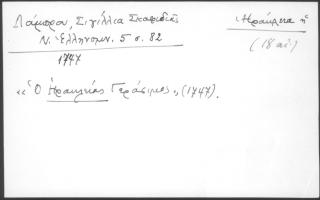 Λάμπρου, Σιγίλλια Σκαφιδιᾶς
Ν. Ἑλληνομν. 5 σ. 82
1747
Ἡράκλεια ἡ
(18 αἰ)
«Ὁ Ἡρακλείας Γεράσιμος» (1747).